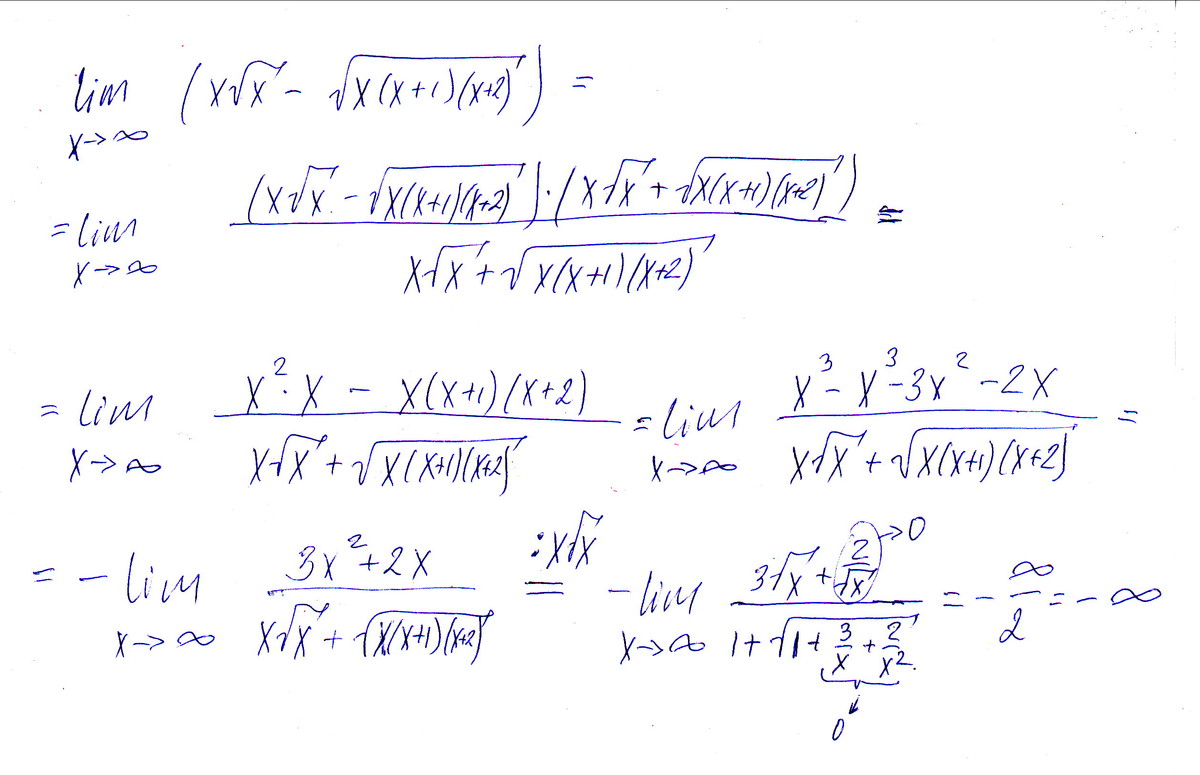 lim x→∞ (x√x - √(x(x+1)(x+2))) =
= lim x→∞ ((x√x - √(x(x+1)(x+2)))·(x√x + √(x(x+1)(x+2))))/(x√x + √(x(x+1)(x+2))) =
= lim x→∞ (x²·x - x(x+1)(x+2))/(x√x + √(x(x+1)(x+2))) = lim x→∞ (x³-x³-3x²-2x)/(x√x + √(x(x+1)(x+2))) =
= - lim x→∞ (3x²+2x)/(x√x + √(x(x+1)(x+2))) =^{:x√x} -lim x→∞ (3√x + 2/√x →0)/(1+√(1+3/x+2/x²)) = -∞/2 = -∞
0